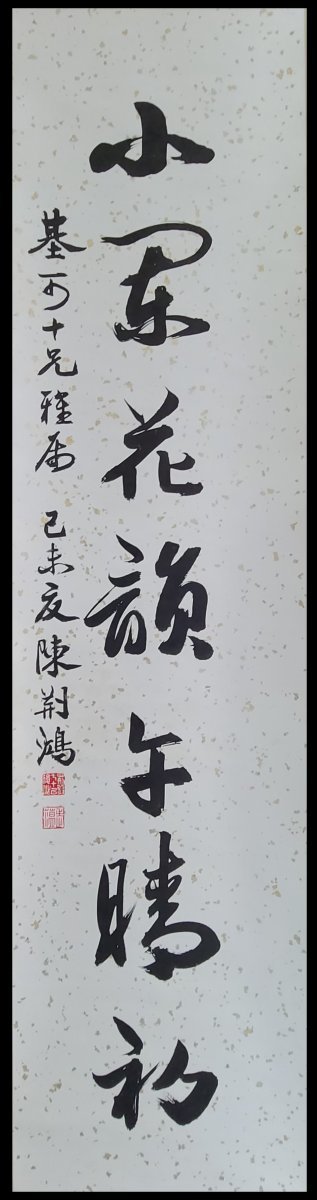 小闌花韻午晴初
基可十兄雅屬 己未夏陳荆鴻